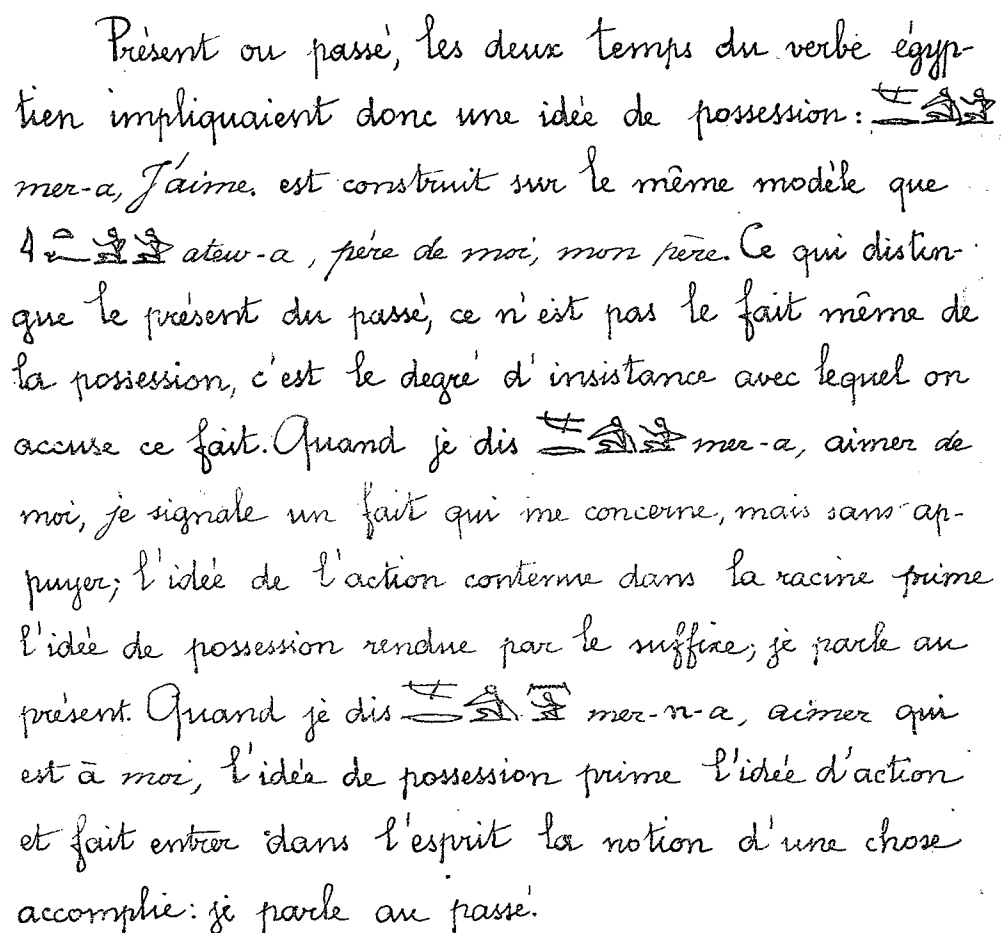 Présent ou passé, les deux temps du verbe égyp-
tien impliquaient donc une idée de possession:
mer-a, J'aime. est construit sur le même modèle que
atew-a, père de moi, mon père. Ce qui distin-
gue le présent du passé, ce n'est pas le fait même de
la possession, c'est le degré d'insistance avec lequel on
accuse ce fait. Quand je dis mer-a, aimer de
moi, je signale un fait qui me concerne, mais sans ap-
puyer; l'idée de l'action contenue dans la racine prime
l'idée de possession rendue par le suffixe; je parle au
présent. Quand je dis mer-n-a, aimer qui
est à moi, l'idée de possession prime l'idée d'action
et fait entrer dans l'esprit la notion d'une chose
accomplie: je parle au passé.